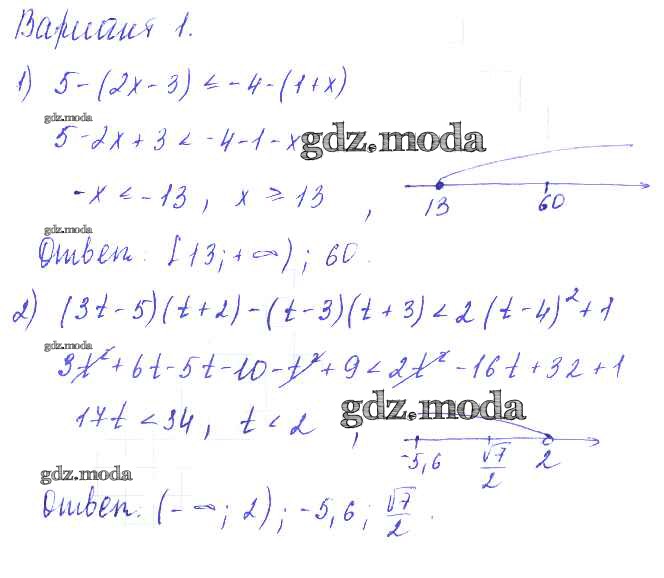 Вариант 1.
1) 5-(2x-3) ≤ -4-(1+x)
gdz.moda
5-2x+3 < -4-1-x gdz.moda
-x ≤ -13, x ≥ 13,
13 60
gdz.moda
Ответ: [13; +∞); 60.
2) (3t-5)(t+2)-(t-3)(t+3) < 2(t-4)²+1
gdz.moda
3t²+6t-5t-10-t²+9 < 2t²-16t+32+1
gdz.moda
17t < 34, t < 2,
-5,6 √7/2 2
gdz.moda
Ответ: (-∞; 2); -5,6; √7/2.